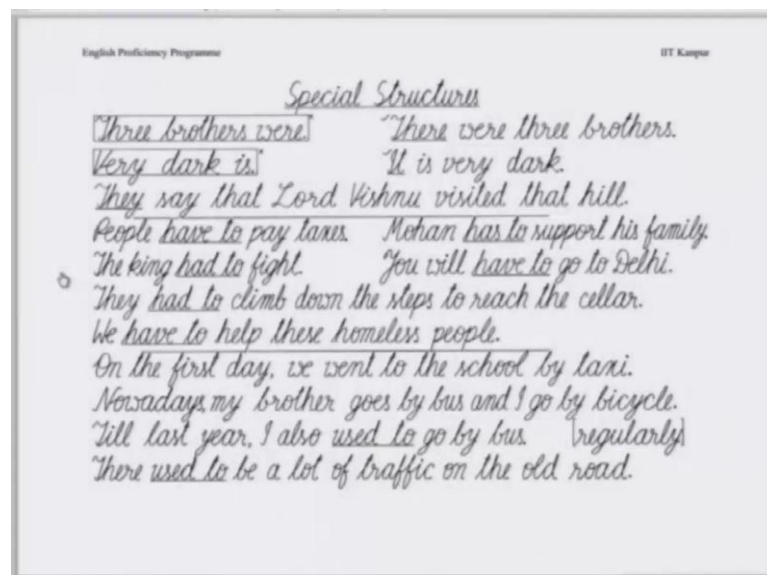 English Proficiency Programme IIT Kanpur
Special Structures
"Three brothers were." "There were three brothers.
Very dark is." It is very dark.
They say that Lord Vishnu visited that hill.
People have to pay taxes. Mohan has to support his family.
The king had to fight. You will have to go to Delhi.
They had to climb down the steps to reach the cellar.
We have to help these homeless people.
On the first day, we went to the school by taxi.
Nowadays, my brother goes by bus and I go by bicycle.
Till last year, I also used to go by bus. [regularly]
There used to be a lot of traffic on the old road.